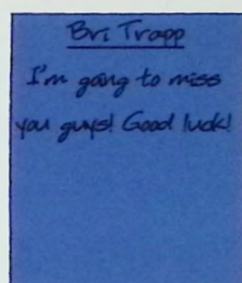 Bri Trapp
I'm going to miss
you guys! Good luck!